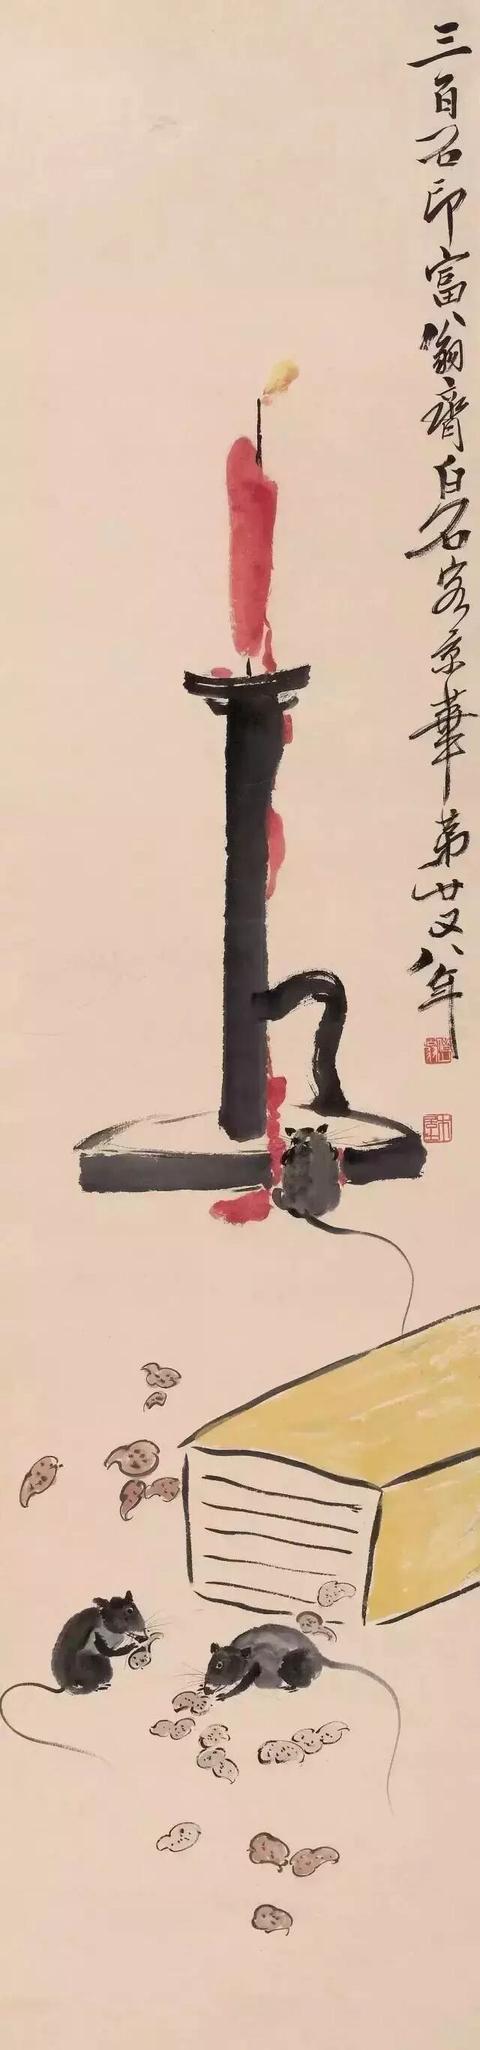 三百石印富翁齊白石客京華第廿又八年